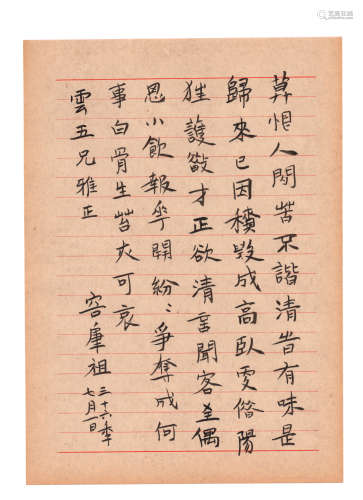 莫恨人間苦不諧清旹有味是
歸來已因積毀成高臥更借陽
狂護散才正欲清言聞客至偶
思小飲報花開紛々爭奪成何
事白骨生苔亦可哀
雲五兄雅正
容肇祖
三十六年
七月一日